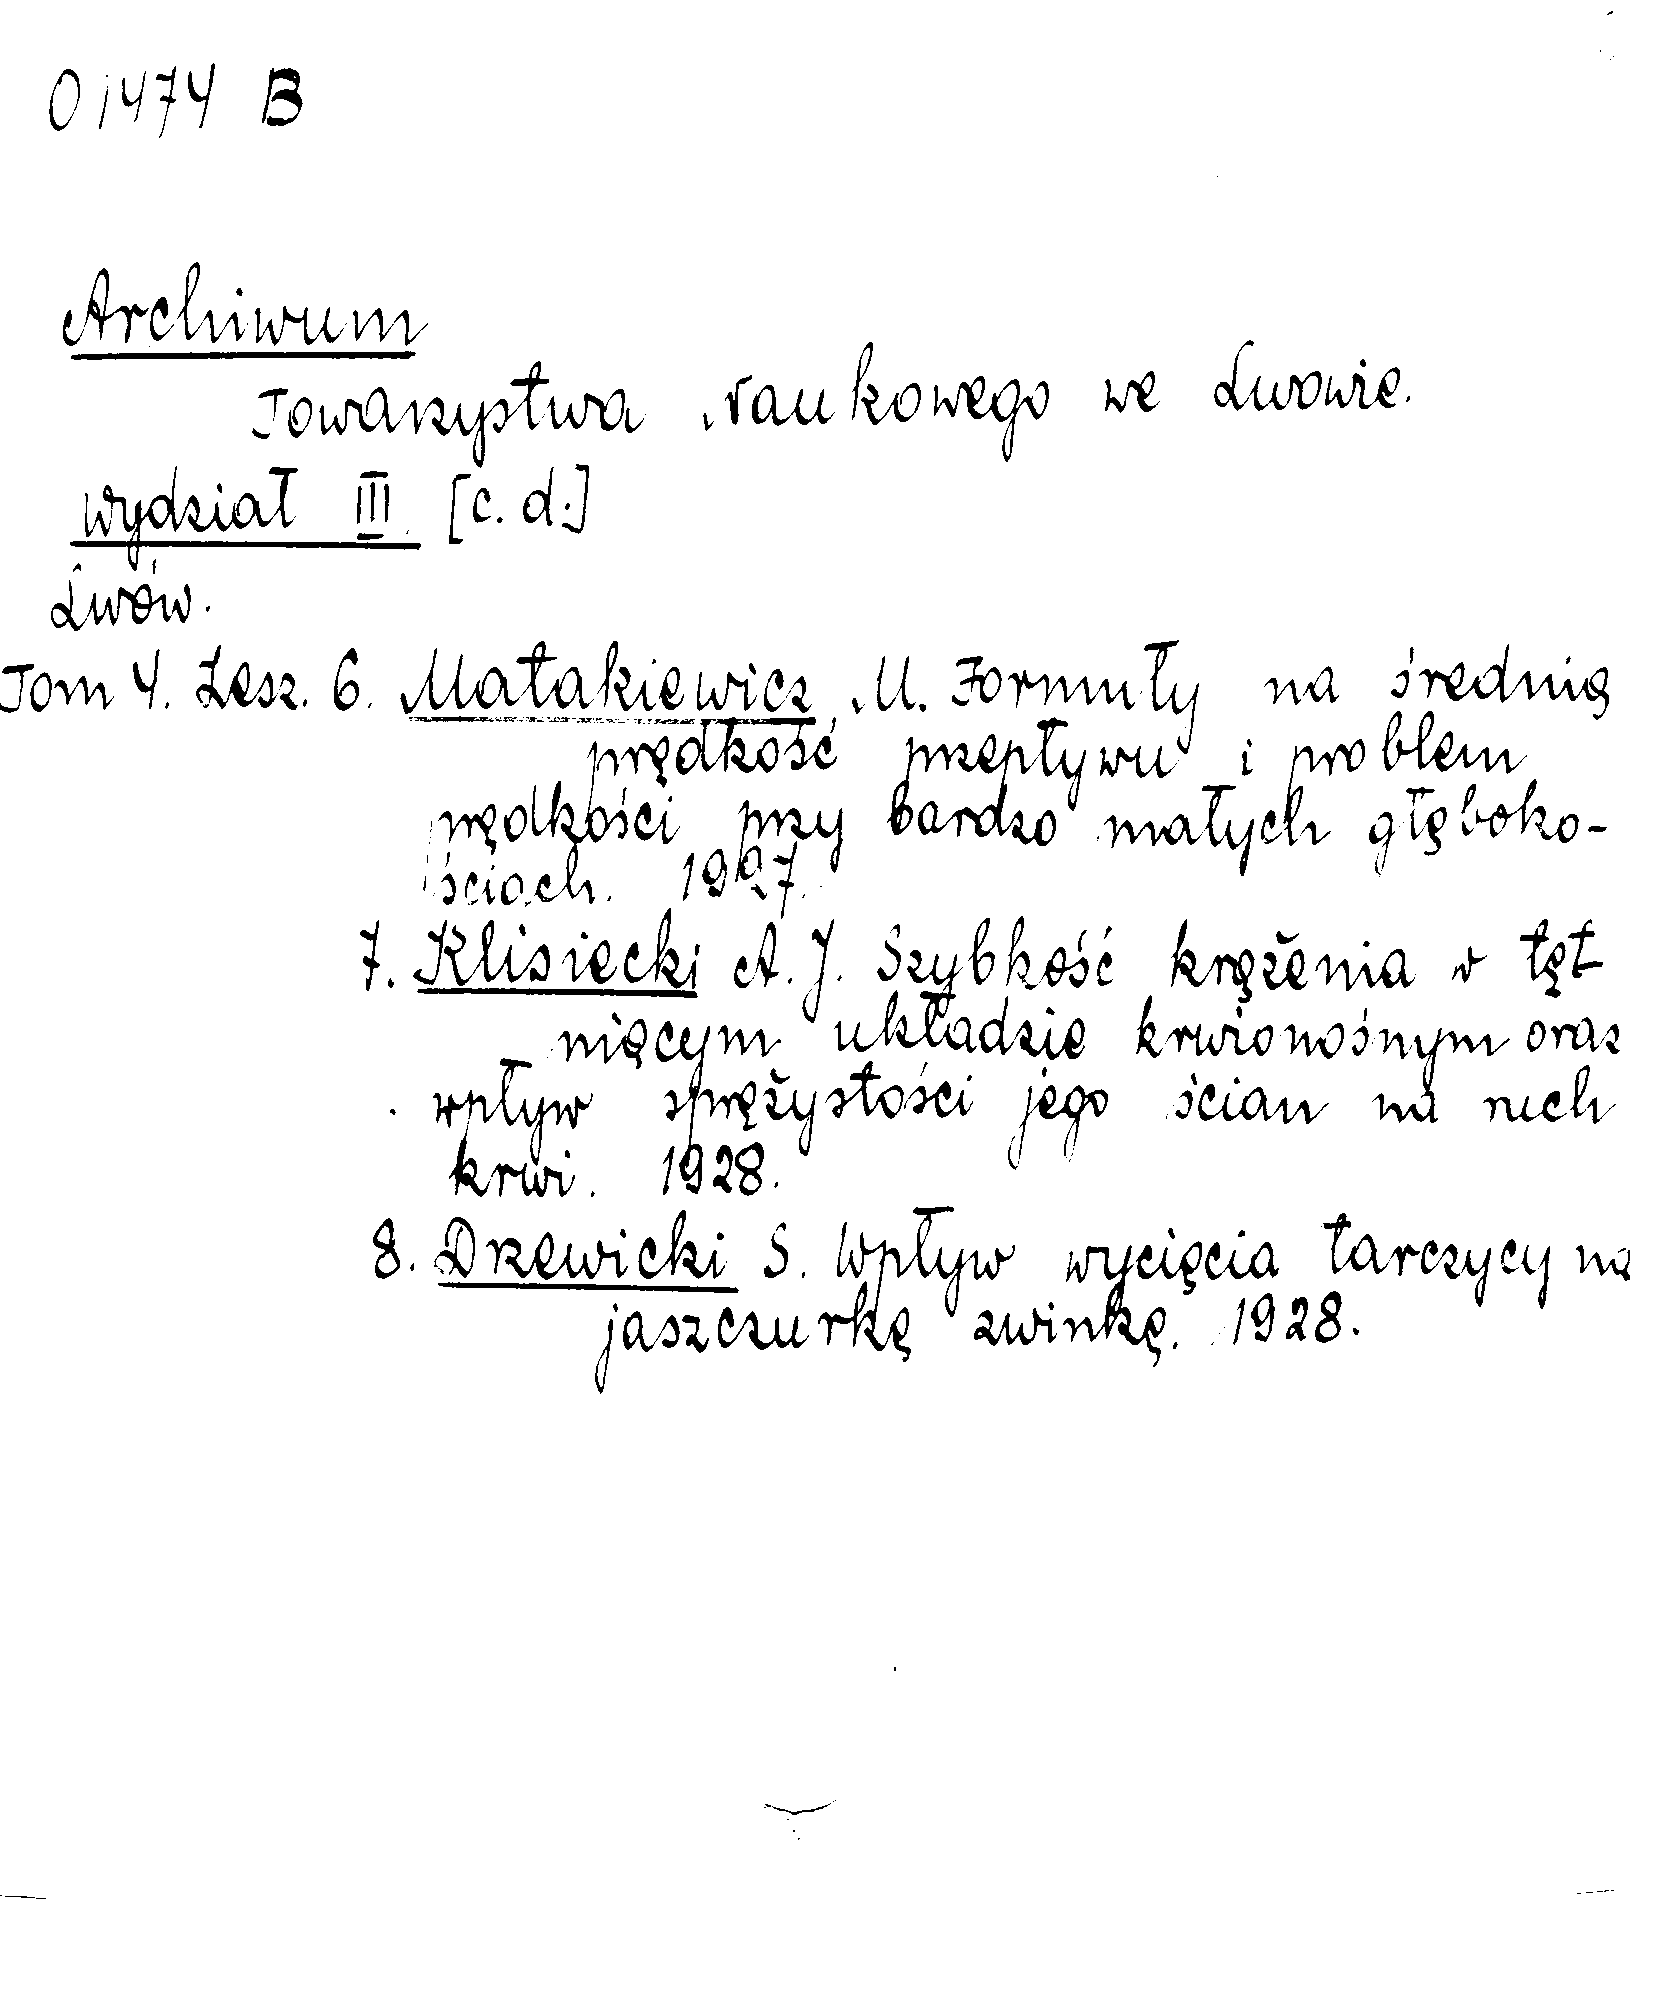 01474 B
Archiwum
Towarzystwa Naukowego we Lwowie.
Wydział III. [c. d.]
Lwów.
Tom 4. Zesz. 6. Matakiewicz M. Formuły na średnią
prędkość przepływu i problem
prędkości przy bardzo małych głęboko-
ściach. 1927.
7. Klisiecki A. J. Szybkość krążenia w tęt
niącym układzie krwionośnym oraz
wpływ sprężystości jego ścian na ruch
krwi. 1928.
8. Drzewicki S. Wpływ wycięcia tarczycy na
jaszczurkę zwinkę. 1928.